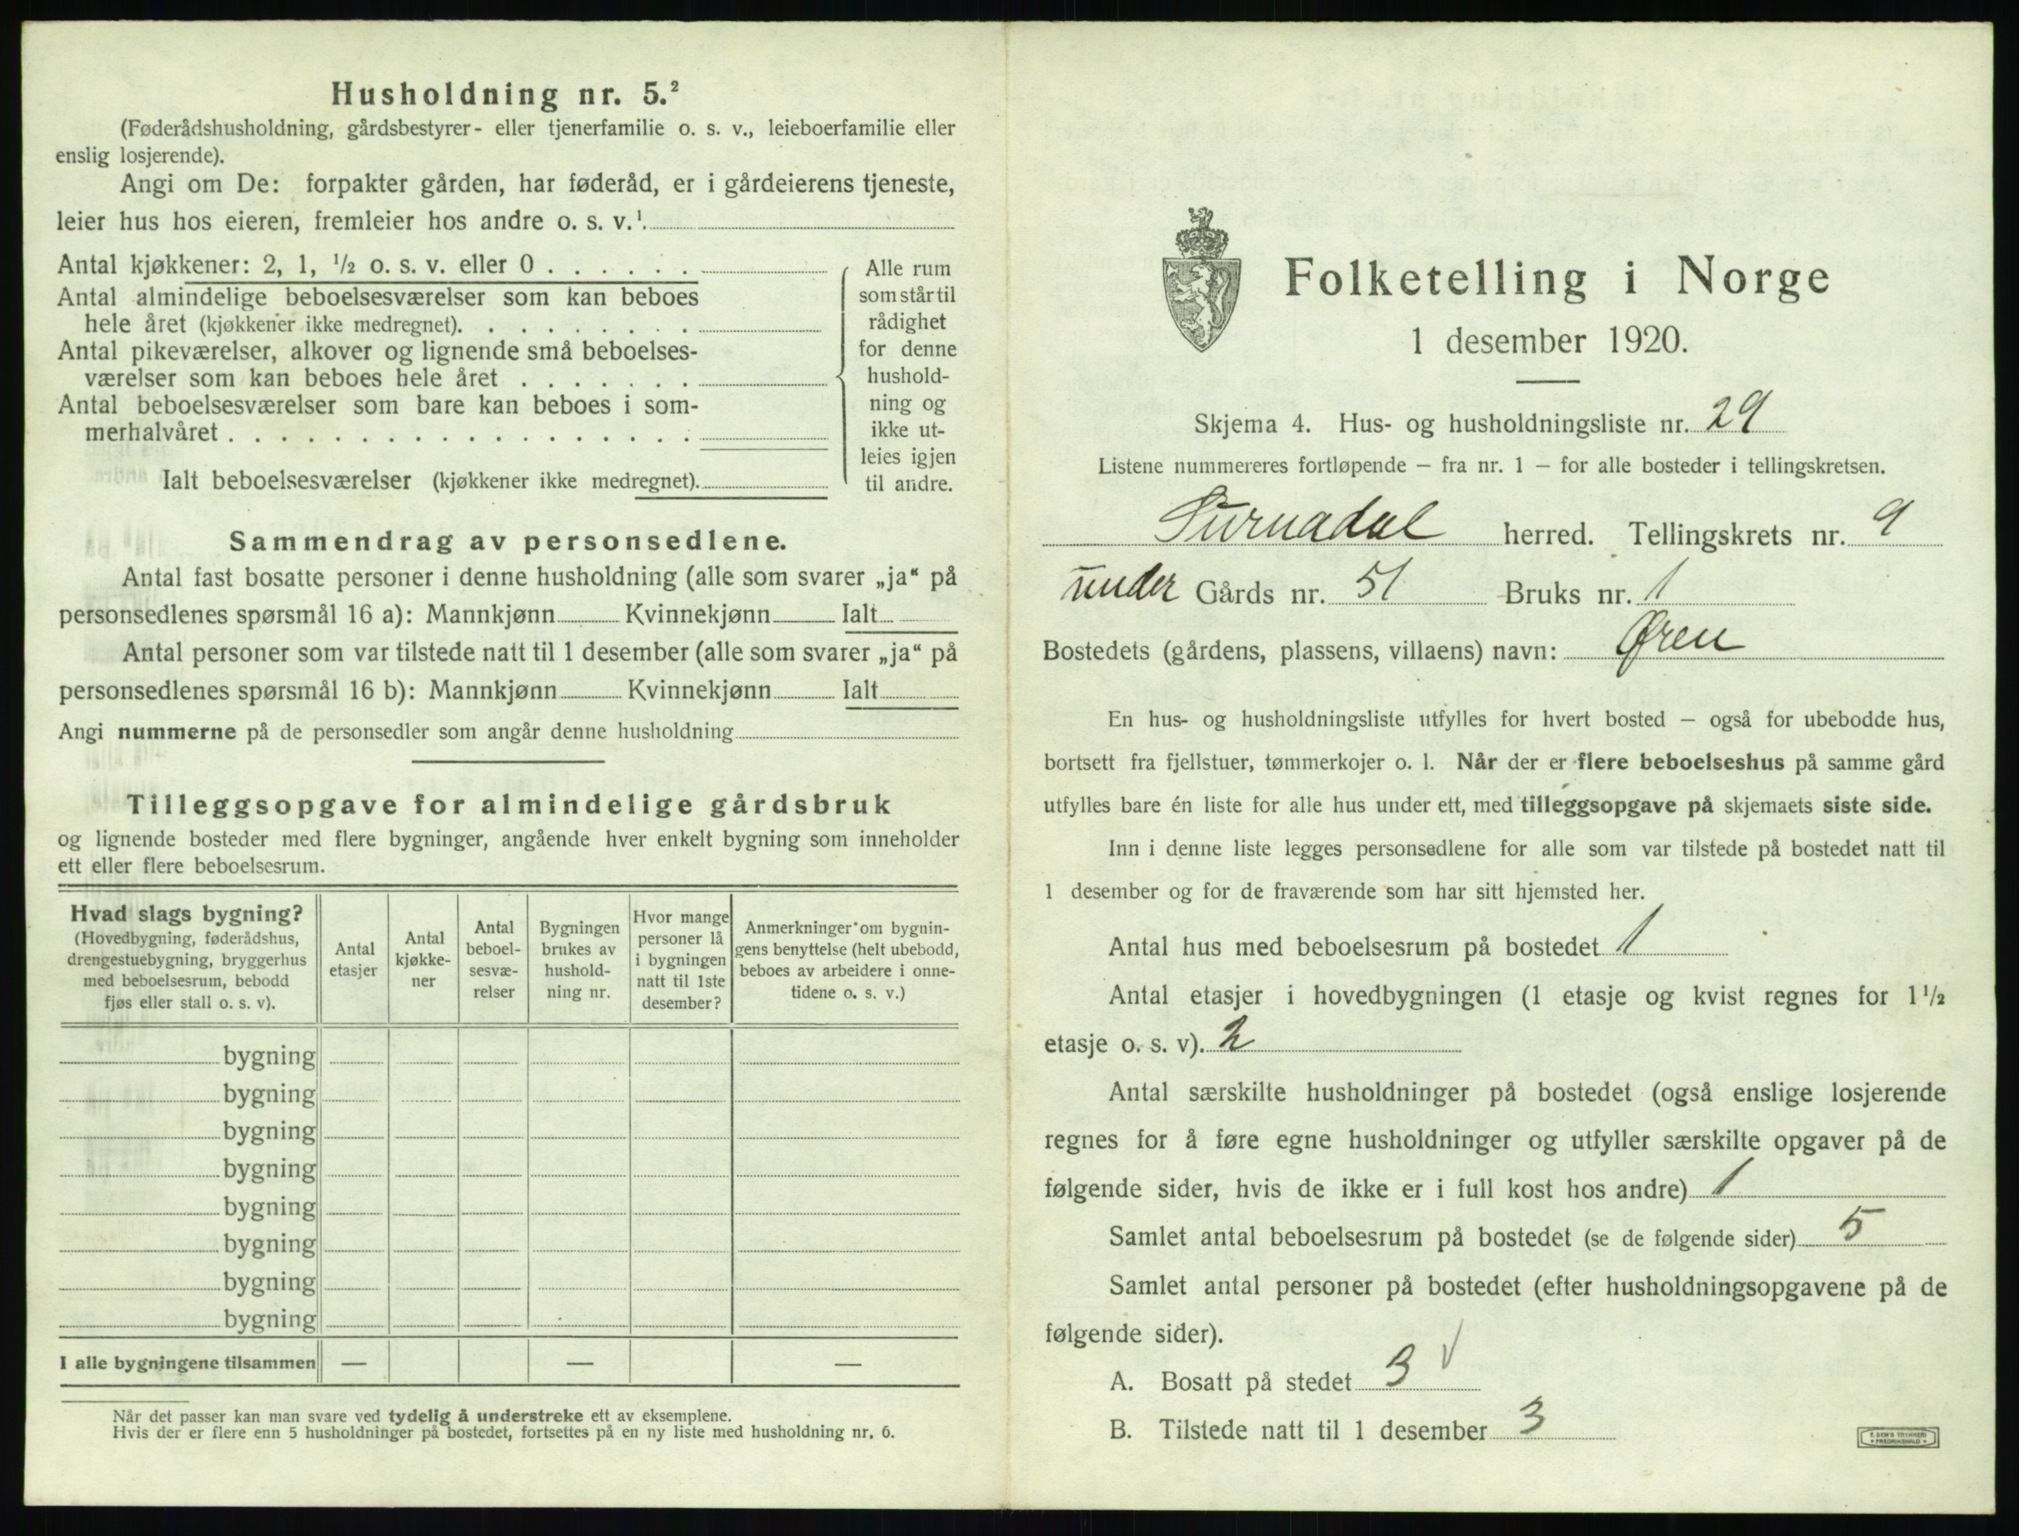 Husholdning nr. 5.²
(Føderådshusholdning, gårdsbestyrer- eller tjenerfamilie o. s. v., leieboerfamilie eller
enslig losjerende).
Angi om De: forpakter gården, har føderåd, er i gårdeierens tjeneste,
leier hus hos eieren, fremleier hos andre o. s. v.¹
Antal kjøkkener: 2, 1, ½ o. s. v. eller 0 . . . . . .
Antal almindelige beboelsesværelser som kan beboes
hele året (kjøkkener ikke medregnet). . . . . . . . .
Antal pikeværelser, alkover og lignende små beboelses-
værelser som kan beboes hele året . . . . . . .
Antal beboelsesværelser som bare kan beboes i som-
merhalvåret . . . . . . . . . . . . . . . . . .
Ialt beboelsesværelser (kjøkkener ikke medregnet).
Alle rum
som står til
rådighet
for denne
hushold-
ning og
ikke ut-
leies igjen
til andre.
Sammendrag av personsedlene.
Antal fast bosatte personer i denne husholdning (alle som svarer „ja“ på
personsedlenes spørsmål 16 a): Mannkjønn Kvinnekjønn Ialt
Antal personer som var tilstede natt til 1 desember (alle som svarer „ja“ på
personsedlenes spørsmål 16 b): Mannkjønn Kvinnekjønn Ialt
Angi nummerne på de personsedler som angår denne husholdning
Tilleggsopgave for almindelige gårdsbruk
og lignende bosteder med flere bygninger, angående hver enkelt bygning som inneholder
ett eller flere beboelsesrum.
Hvad slags bygning?
(Hovedbygning, føderådshus,
drengestuebygning, bryggerhus
med beboelsesrum, bebodd
fjøs eller stall o. s. v).
Antal
etasjer
Antal
kjøkke-
ner
Antal
beboel-
sesvæ-
relser
Bygningen
brukes av
hushold-
ning nr.
Hvor mange
personer lå
i bygningen
natt til 1ste
desember?
Anmerkninger om bygnin-
gens benyttelse (helt ubebodd,
beboes av arbeidere i onne-
tidene o. s. v.)
bygning
bygning
bygning
bygning
bygning
bygning
bygning
bygning
I alle bygningene tilsammen — — —
Når det passer kan man svare ved tydelig å understreke ett av eksemplene.
Hvis der er flere enn 5 husholdninger på bostedet, fortsettes på en ny liste med husholdning nr. 6.
Folketelling i Norge
1 desember 1920.
Skjema 4. Hus- og husholdningsliste nr. 29
Listene nummereres fortløpende – fra nr. 1 – for alle bosteder i tellingskretsen.
Surnadal herred. Tellingskrets nr. 9
under Gårds nr. 51 Bruks nr. 1
Bostedets (gårdens, plassens, villaens) navn: Øren
En hus- og husholdningsliste utfylles for hvert bosted – også for ubebodde hus,
bortsett fra fjellstuer, tømmerkojer o. l. Når der er flere beboelseshus på samme gård
utfylles bare én liste for alle hus under ett, med tilleggsopgave på skjemaets siste side.
Inn i denne liste legges personsedlene for alle som var tilstede på bostedet natt til
1 desember og for de fraværende som har sitt hjemsted her.
Antal hus med beboelsesrum på bostedet 1
Antal etasjer i hovedbygningen (1 etasje og kvist regnes for 1½
etasje o. s. v). 2
Antal særskilte husholdninger på bostedet (også enslige losjerende
regnes for å føre egne husholdninger og utfyller særskilte opgaver på de
følgende sider, hvis de ikke er i full kost hos andre) 1
Samlet antal beboelsesrum på bostedet (se de følgende sider) 5
Samlet antal personer på bostedet (efter husholdningsopgavene på de
følgende sider).
A. Bosatt på stedet 3 √
B. Tilstede natt til 1 desember 3